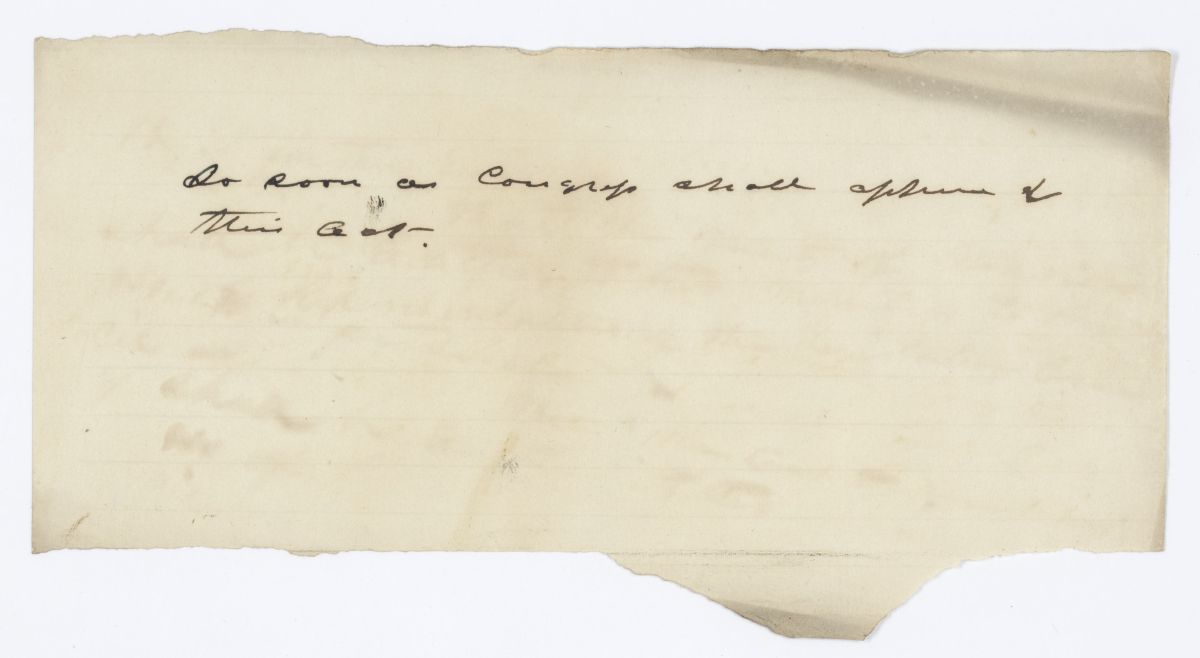 So soon as Congress shall approve of
this Act.